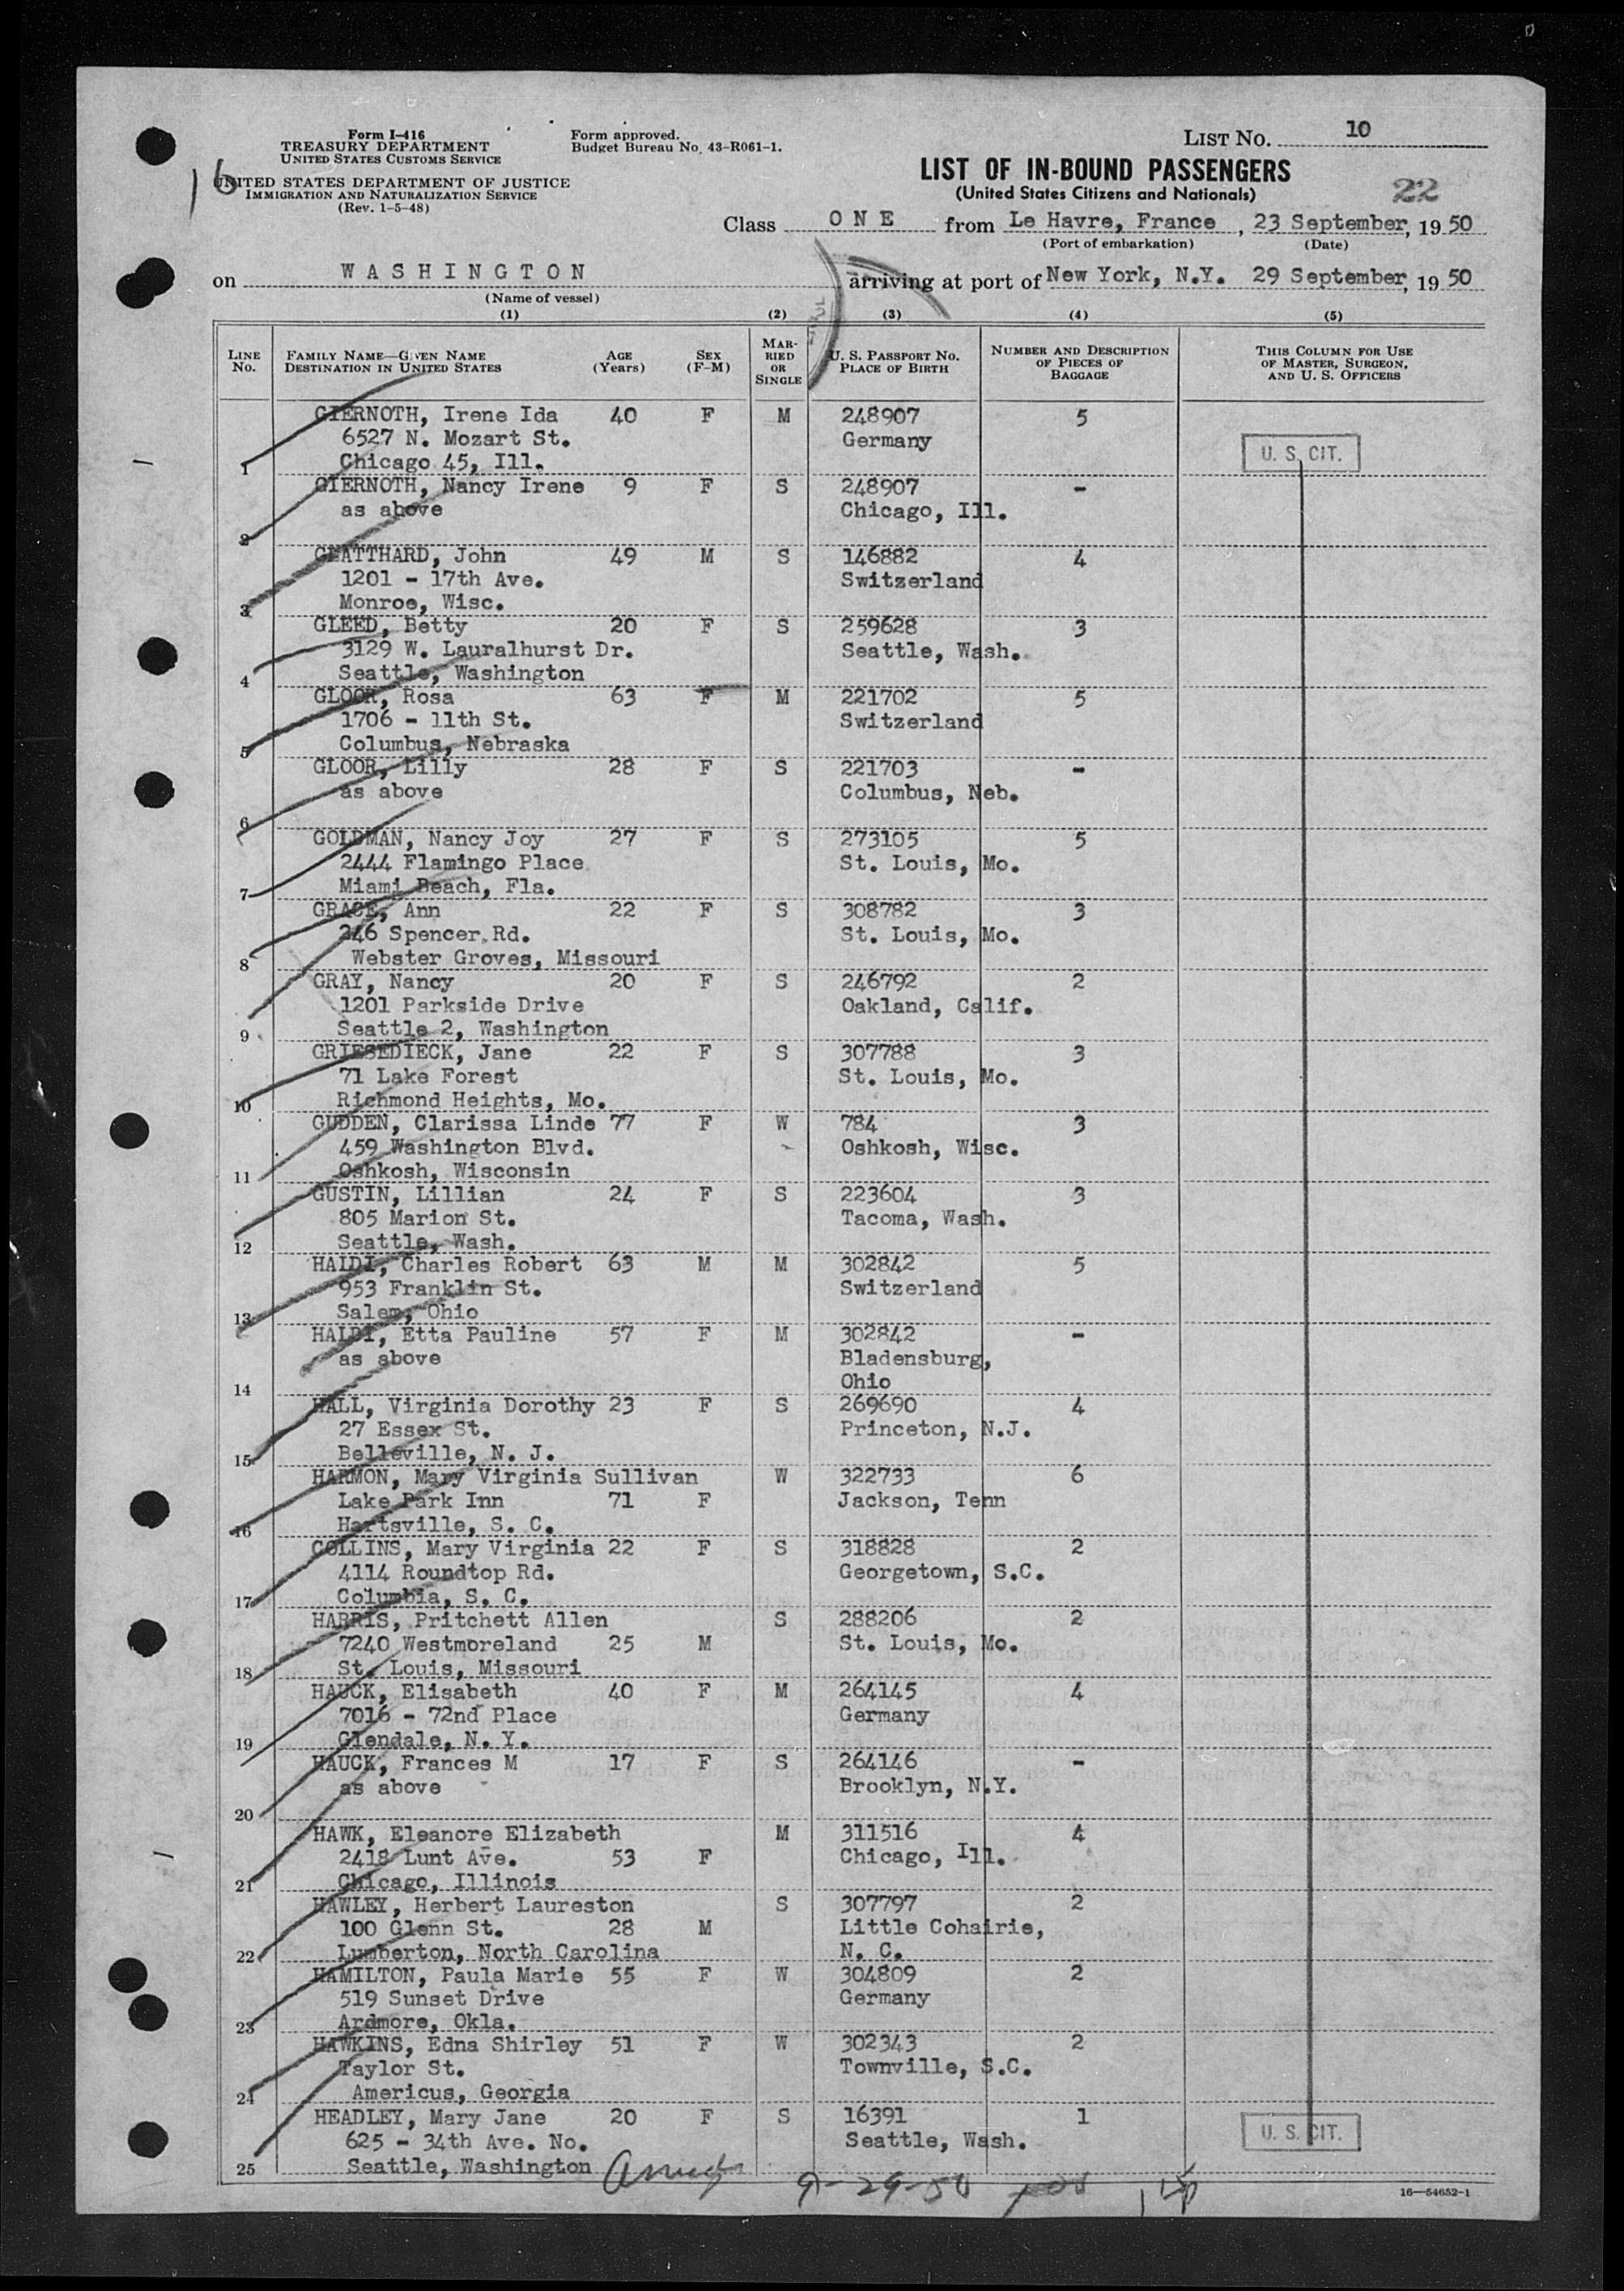 Form I-416
TREASURY DEPARTMENT
UNITED STATES CUSTOMS SERVICE
UNITED STATES DEPARTMENT OF JUSTICE
IMMIGRATION AND NATURALIZATION SERVICE
(Rev. 1-5-48)
Form approved.
Budget Bureau No. 43-R061-1.
LIST No. 10
16
LIST OF IN-BOUND PASSENGERS
(United States Citizens and Nationals)
22
Class ONE from Le Havre, France, 23 September, 1950
(Port of embarkation) (Date)
on WASHINGTON arriving at port of New York, N.Y. 29 September, 1950
(Name of vessel)
(1) (2) (3) (4) (5)
LINE No. FAMILY NAME—GIVEN NAME DESTINATION IN UNITED STATES AGE (Years) SEX (F-M) MARRIED OR SINGLE U. S. PASSPORT NO. PLACE OF BIRTH NUMBER AND DESCRIPTION OF PIECES OF BAGGAGE THIS COLUMN FOR USE OF MASTER, SURGEON, AND U. S. OFFICERS
GIERNOTH, Irene Ida 40 F M 248907 5
6527 N. Mozart St. Germany U. S. CIT.
1 Chicago 45, Ill.
GIERNOTH, Nancy Irene 9 F S 248907 -
as above Chicago, Ill.
2
GLATTHARD, John 49 M S 146882 4
1201 - 17th Ave. Switzerland
3 Monroe, Wisc.
GLEED, Betty 20 F S 259628 3
3129 W. Lauralhurst Dr. Seattle, Wash.
4 Seattle, Washington
GLOOR, Rosa 63 F M 221702 5
1706 - 11th St. Switzerland
5 Columbus, Nebraska
GLOOR, Lilly 28 F S 221703 -
as above Columbus, Neb.
6
GOLDMAN, Nancy Joy 27 F S 273105 5
2444 Flamingo Place St. Louis, Mo.
7 Miami Beach, Fla.
GRACE, Ann 22 F S 308782 3
246 Spencer Rd. St. Louis, Mo.
8 Webster Groves, Missouri
GRAY, Nancy 20 F S 246792 2
1201 Parkside Drive Oakland, Calif.
9 Seattle 2, Washington
GRIESEDIECK, Jane 22 F S 307788 3
71 Lake Forest St. Louis, Mo.
10 Richmond Heights, Mo.
GUDDEN, Clarissa Linde 77 F W 784 3
459 Washington Blvd. Oshkosh, Wisc.
11 Oshkosh, Wisconsin
GUSTIN, Lillian 24 F S 223604 3
805 Marion St. Tacoma, Wash.
12 Seattle, Wash.
HALDI, Charles Robert 63 M M 302842 5
953 Franklin St. Switzerland
13 Salem, Ohio
HALDI, Etta Pauline 57 F M 302842 -
as above Bladensburg,
14 Ohio
HALL, Virginia Dorothy 23 F S 269690 4
27 Essex St. Princeton, N.J.
15 Belleville, N. J.
HARMON, Mary Virginia Sullivan W 322733 6
Lake Park Inn 71 F Jackson, Tenn
16 Hartsville, S. C.
COLLINS, Mary Virginia 22 F S 318828 2
4114 Roundtop Rd. Georgetown, S.C.
17 Columbia, S. C.
HARRIS, Pritchett Allen S 288206 2
7240 Westmoreland 25 M St. Louis, Mo.
18 St. Louis, Missouri
HAUCK, Elisabeth 40 F M 264145 4
7016 - 72nd Place Germany
19 Glendale, N. Y.
HAUCK, Frances M 17 F S 264146 -
as above Brooklyn, N.Y.
20
HAWK, Eleanore Elizabeth M 311516 4
2418 Lunt Ave. 53 F Chicago, Ill.
21 Chicago, Illinois
HAWLEY, Herbert Laureston S 307797 2
100 Glenn St. 28 M Little Cohairie,
22 Lumberton, North Carolina N. C.
HAMILTON, Paula Marie 55 F W 304809 2
519 Sunset Drive Germany
23 Ardmore, Okla.
HAWKINS, Edna Shirley 51 F W 302343 2
Taylor St. Townville, S.C.
24 Americus, Georgia
HEADLEY, Mary Jane 20 F S 16391 1
625 - 34th Ave. No. Seattle, Wash. U. S. CIT.
25 Seattle, Washington
9-29-50
16—54652-1